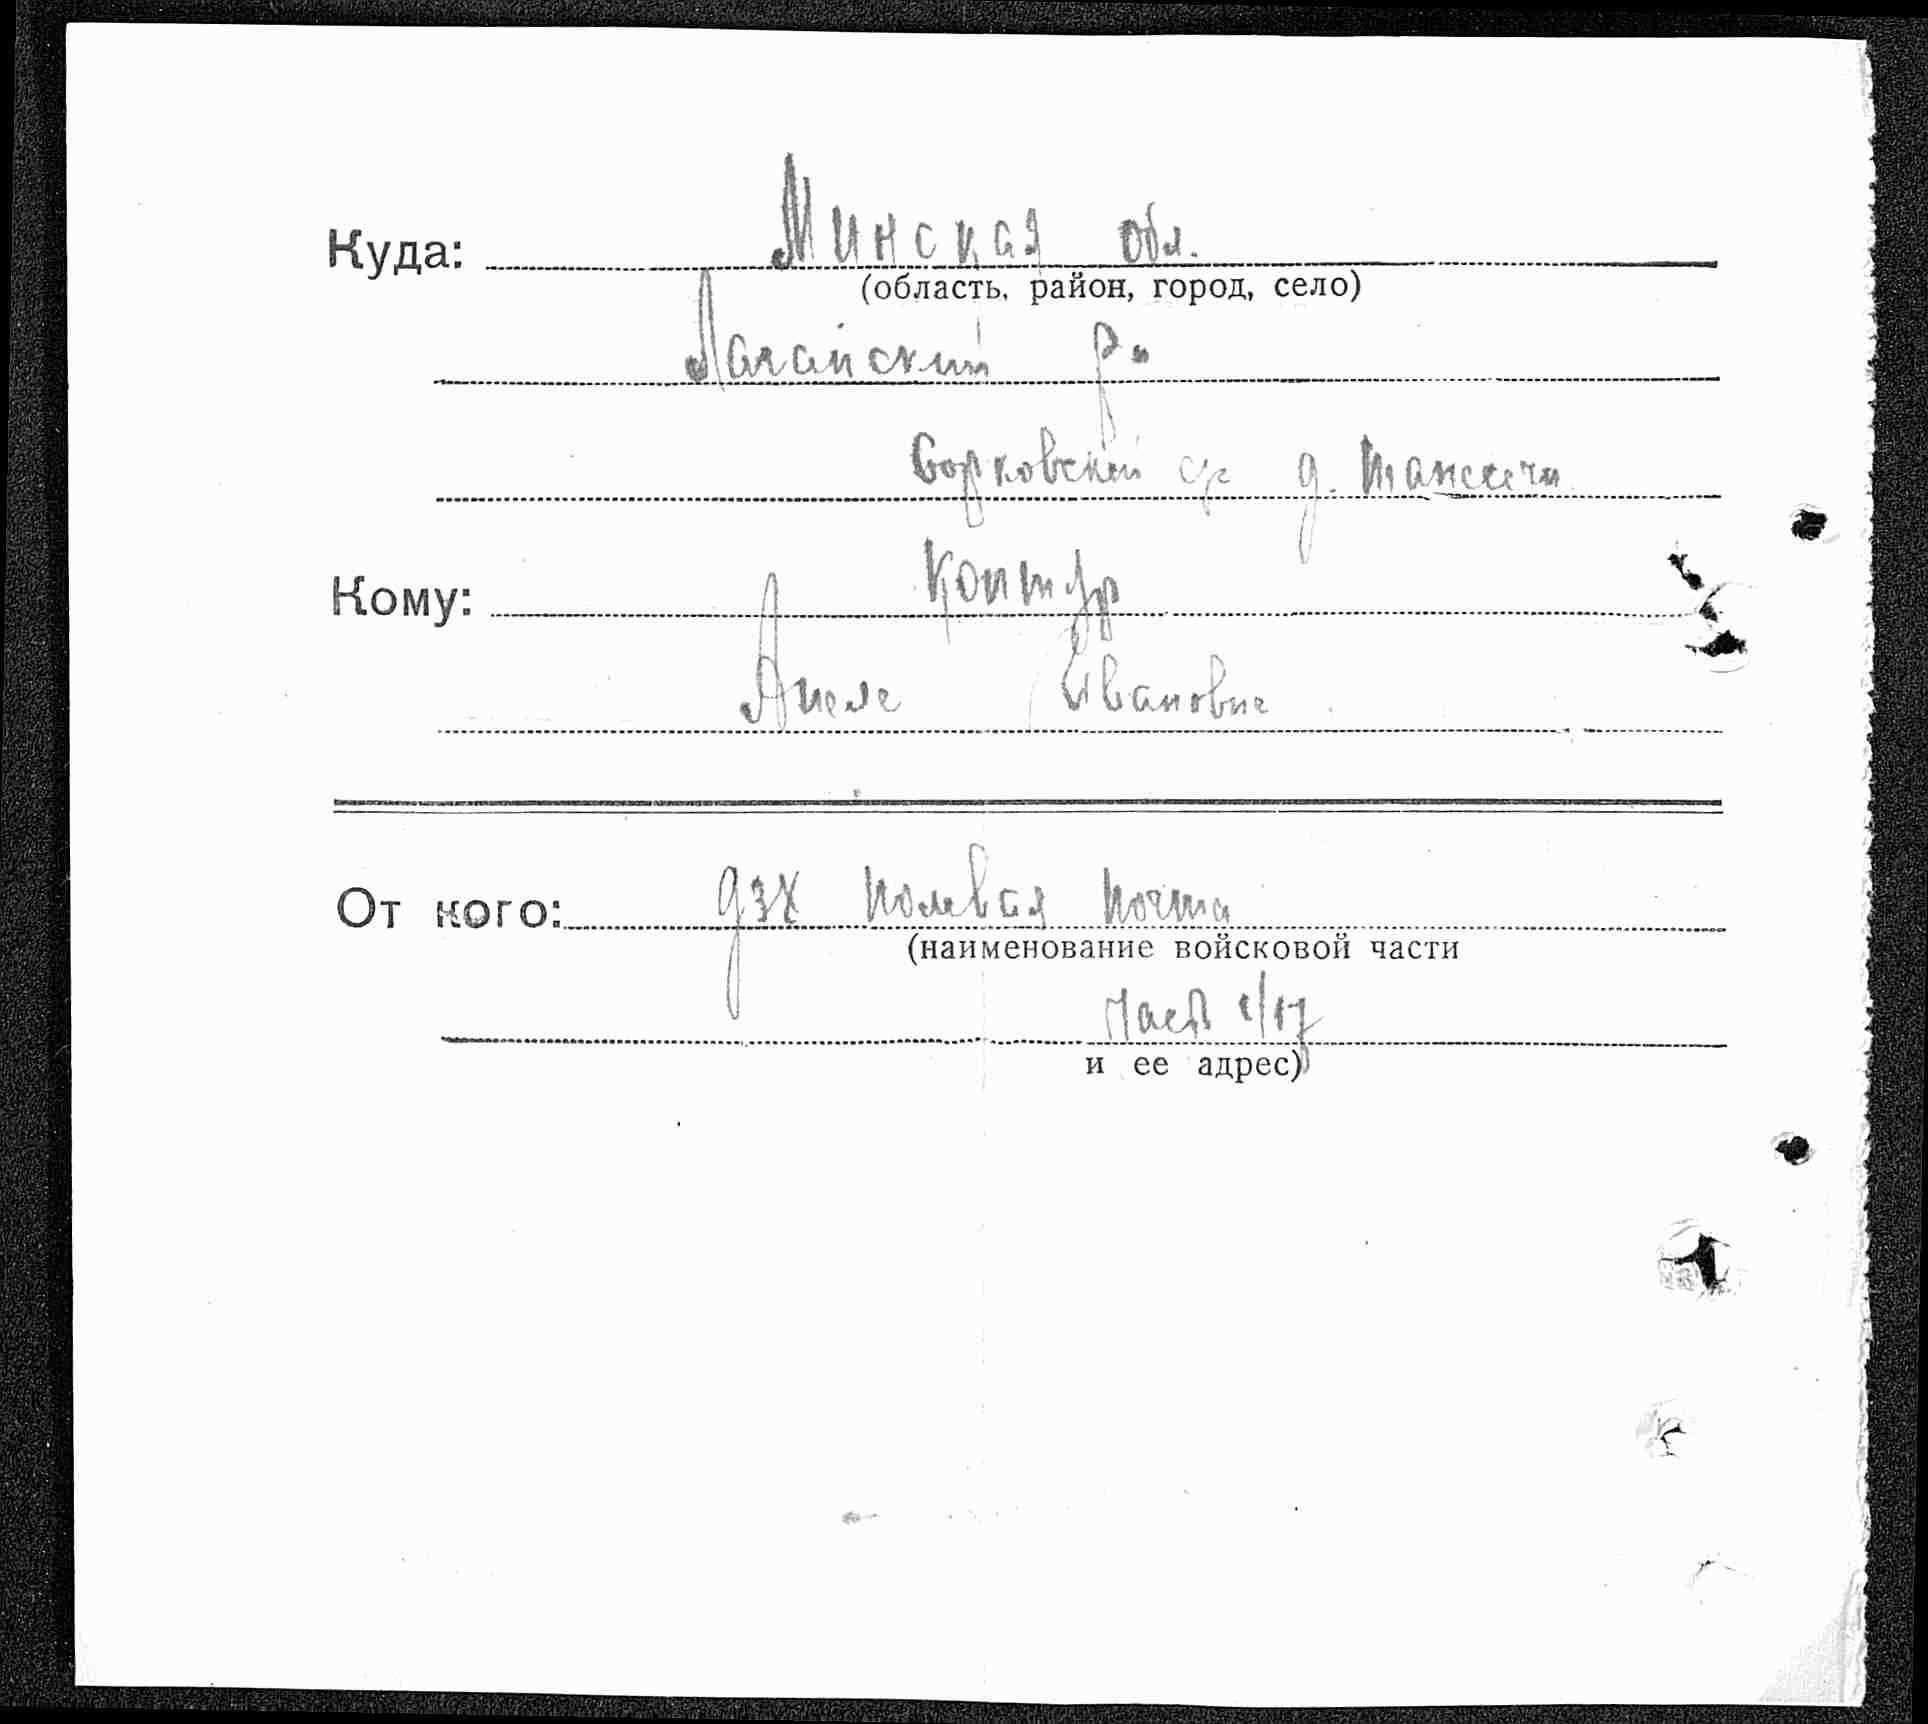 Куда: Минская обл.
(область, район, город, село)
Лагайский р-н
Борковский с/с д.
Кому: Коптур
Анеле Ивановне
От кого: Полевая почта
(наименование войсковой части
часть
и ее адрес)